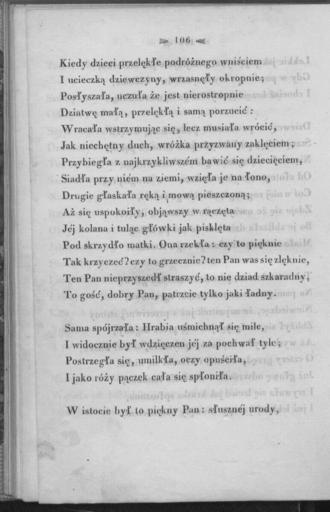 106
Kiedy dzieci przelękłe podróżnego wniściem
I ucieczką dziewczyny, wrzasnęły okropnie;
Posłyszała, uczuła że jest nierostropnie
Dziatwę małą, przelękłą i samą porzucić:
Wracała wstrzymując się, lecz musiała wrócić,
Jak niechętny duch, wróżka przyzwany zaklęciem;
Przybiegła z najkrzykliwszém bawić się dziecięciem,
Siadła przy niém na ziemi, wzięła je na łono,
Drugie głaskała ręką i mową pieszczoną;
Aż się uspokoiły, objąwszy w rączęta
Jéj kolana i tuląc główki jak pisklęta
Pod skrzydło matki. Ona rzekła: czy to pięknie
Tak krzyczeć? czy to grzecznie? ten Pan was się zlęknie,
Ten Pan nieprzyszedł straszyć, to nie dziad szkaradny,
To gość, dobry Pan, patrzcie tylko jaki ładny.
Sama spójrzała: Hrabia uśmiechnął się mile,
I widocznie był wdzięczen jéj za pochwał tyle;
Postrzegła się, umilkła, oczy opuściła,
I jako róży pączek cała się spłoniła.
W istocie był to piękny Pan: słusznéj urody,